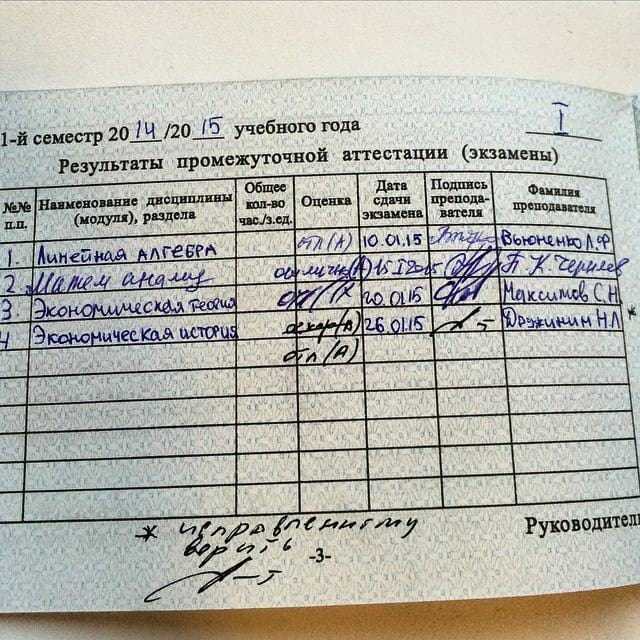 1-й семестр 2014/2015 учебного года I
Результаты промежуточной аттестации (экзамены)
№№ п.п. Наименование дисциплины (модуля), раздела Общее кол-во час./з.ед. Оценка Дата сдачи экзамена Подпись препода-вателя Фамилия преподавателя
1. Линейная алгебра отл(А) 10.01.15 Вьюненко Л.Ф
2 Матем анализ отлично(А) 15 I 2015 П. К. Черняев
3. Экономическая теория отл (А 20.01.15 Максимов С.Н.
4 Экономическая история (А) 26.01.15 Дружинин Н.Л *
отл (А)
* исправленному
верить
Руководитель
-3-